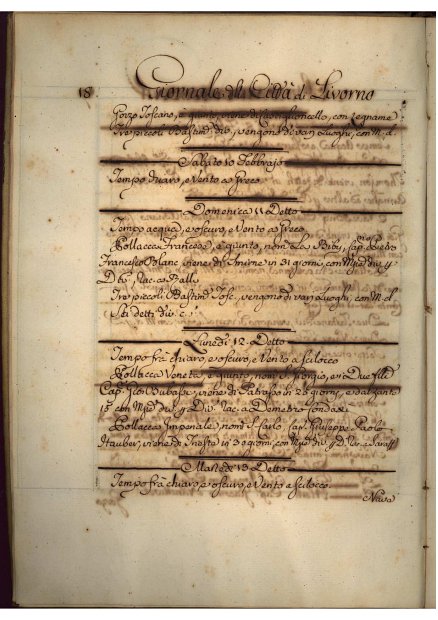 18 Giornale della Città di Livorno
Gozzo Toscano, è giunto, viene di Castiglioncello, con Legname
Tre piccoli Bastim: div: vengono di van Luoghi, con M. d.
Sabato 10 Febbrajo
Tempo chiaro, e Vento a Greco
Domenica 11 Detto
Tempo acqua, e oscuro, e Vento a Greco
Pollacca Francese, è giunto, nom: La Bity, Cap:
Francesco Polano, viene di Smirne in 31 giorni, con Mje div: y
Div: Rac: a Balli
Tre piccoli Bastim: Tosc: vengono di van Luoghi, con M. d.
Sei detti div:
Lunedi 12 Detto
Tempo frà chiaro, e oscuro, e Vento a Scilocco
Pollacca Veneta, è giunto, nom: S. Giorgio, e i Due
Cap: Gio: viene di Patrasso in 25 giorni,
15 con Mje div: y Div: Rac: a Demetrio
Pollacca Imperiale, nom: S. Carlo, Cap: Giuseppe Paolo
Hauber, viene di Trieste in 30 giorni, con Mje div: y D: Rac: a
Martedi 13 Detto
Tempo frà chiaro, e oscuro, e Vento a Scilocco
Nava